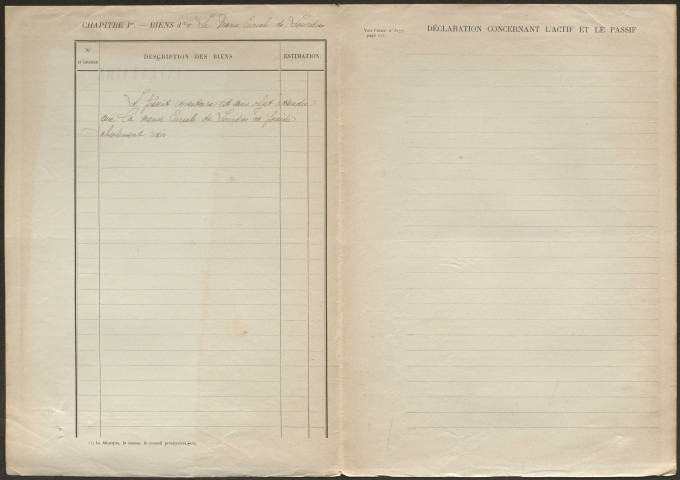 CHAPITRE Ier. — BIENS de La Mense Curiale de Lourdes
N°
D'ORDRE
DESCRIPTION DES BIENS
ESTIMATION
Le présent inventaire est sans objet attendu
que la mense Curiale de Lourdes ne possède
absolument rien
(1) La fabrique, la mense, le conseil presbytéral, etc.
page
DÉCLARATION CONCERNANT L'ACTIF ET LE PASSIF